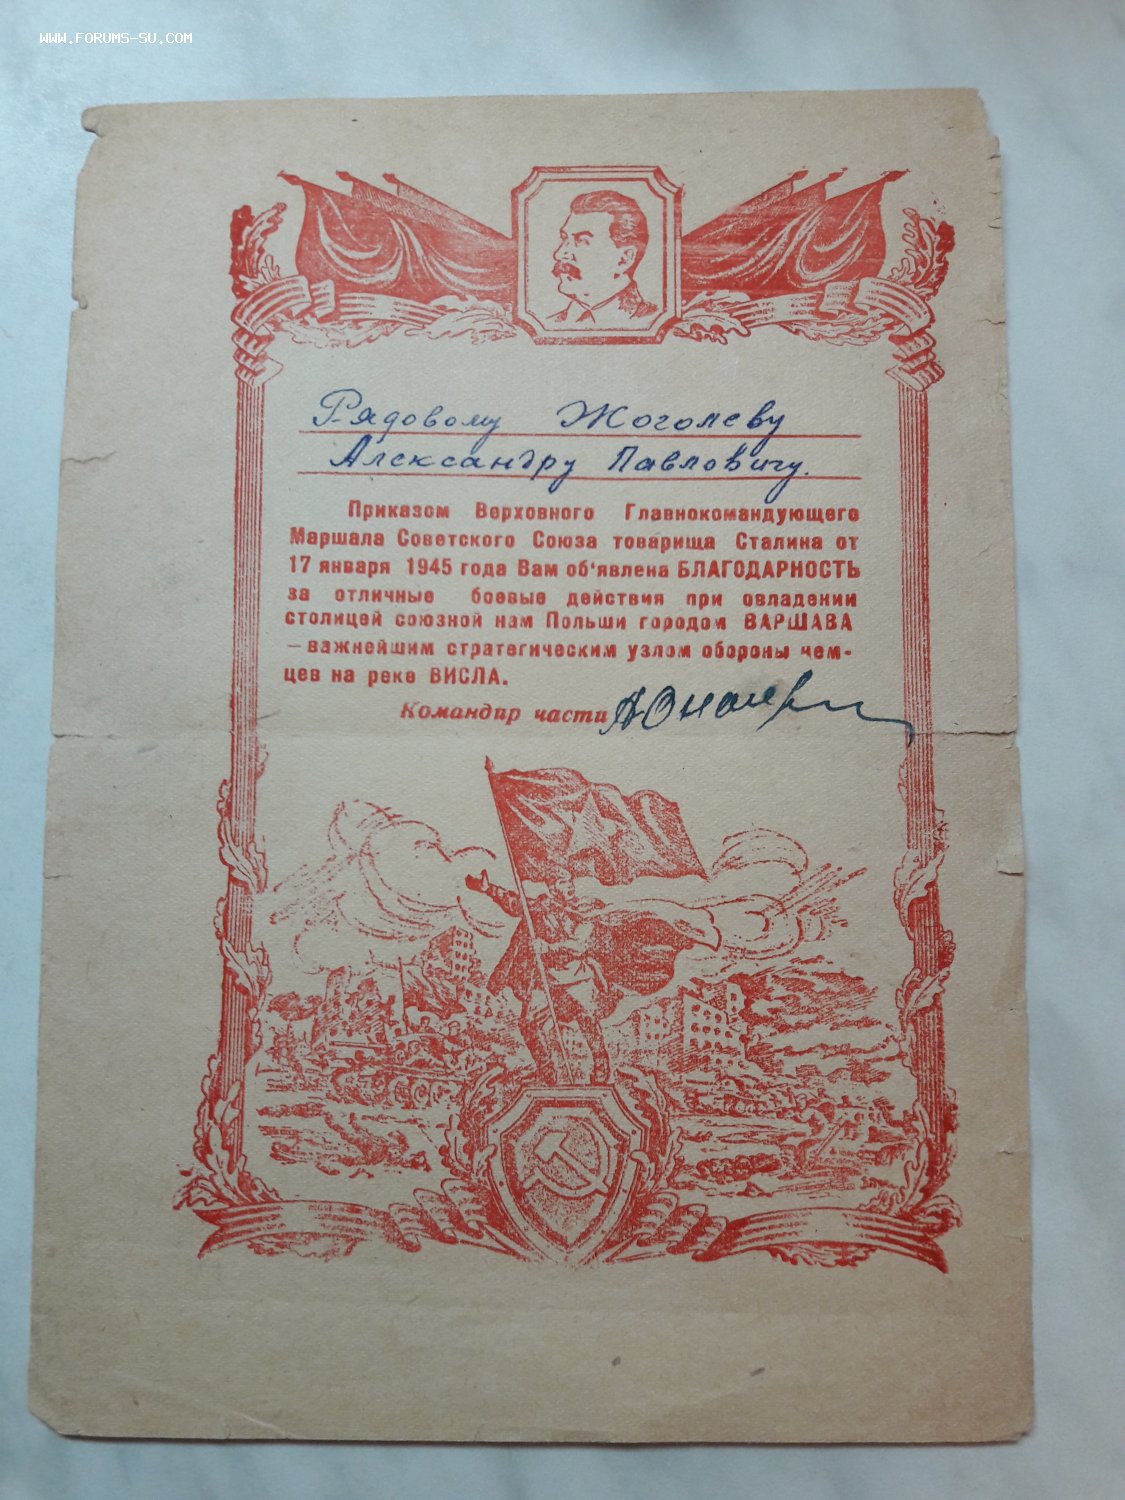 WWW.FORUMS-SU.COM
Рядовому Жоголеву
Александру Павловичу.
Приказом Верховного Главнокомандующего
Маршала Советского Союза товарища Сталина от
17 января 1945 года Вам об'явлена БЛАГОДАРНОСТЬ
за отличные боевые действия при овладении
столицей союзной нам Польши городом ВАРШАВА
— важнейшим стратегическим узлом обороны нем-
цев на реке ВИСЛА.
Командир части